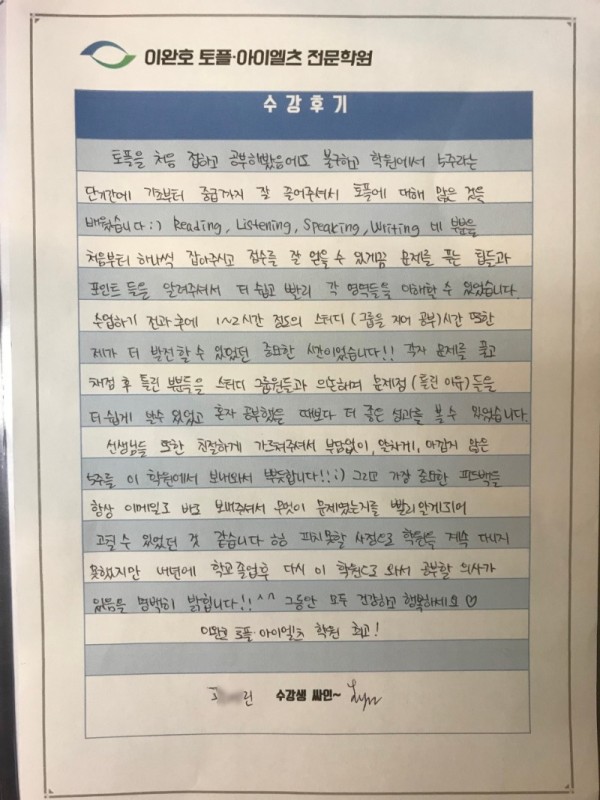 이완호 토플·아이엘츠 전문학원
수강후기
토플을 처음 접하고 공부해봤음에도 불구하고 학원에서 5주라는
단기간에 기초부터 중급까지 잘 끌어주셔서 토플에 대해 많은 것을
배웠습니다 :) Reading, Listening, Speaking, Writing 네 부분을
처음부터 하나씩 잡아주시고 점수를 잘 얻을 수 있게끔 문제를 푸는 팁들과
포인트 들을 알려주셔서 더 쉽고 빨리 각 영역들을 이해할 수 있었습니다.
수업하기 전과 후에 1~2시간 정도의 스터디 (그룹을 지어 공부)시간 또한
제가 더 발전할 수 있었던 중요한 시간이었습니다!! 각자 문제를 풀고
채점 후 틀린 부분들을 스터디 그룹원들과 의논하며 문제점 (틀린 이유)들을
더 쉽게 볼수 있었고 혼자 공부했을 때보다 더 좋은 성과를 볼 수 있었습니다.
선생님들 또한 친절하게 가르쳐주셔서 부담없이, 편하게, 아깝지 않은
5주를 이 학원에서 보내와서 뿌듯합니다!! :) 그리고 가장 중요한 피드백들
항상 이메일로 바로 보내주셔서 무엇이 문제였는거를 빨리 알게되어
고칠 수 있었던 것 같습니다 ㅎㅎ 피치못할 사정으로 학원을 계속 다니지
못했지만 내년에 학교 졸업후 다시 이 학원으로 와서 공부할 의사가
있음을 명백히 밝힙니다!! ^^ 그동안 모두 건강하고 행복하세요 ♡
이완호 토플·아이엘츠 학원 최고!
린 수강생 싸인~ Lyn